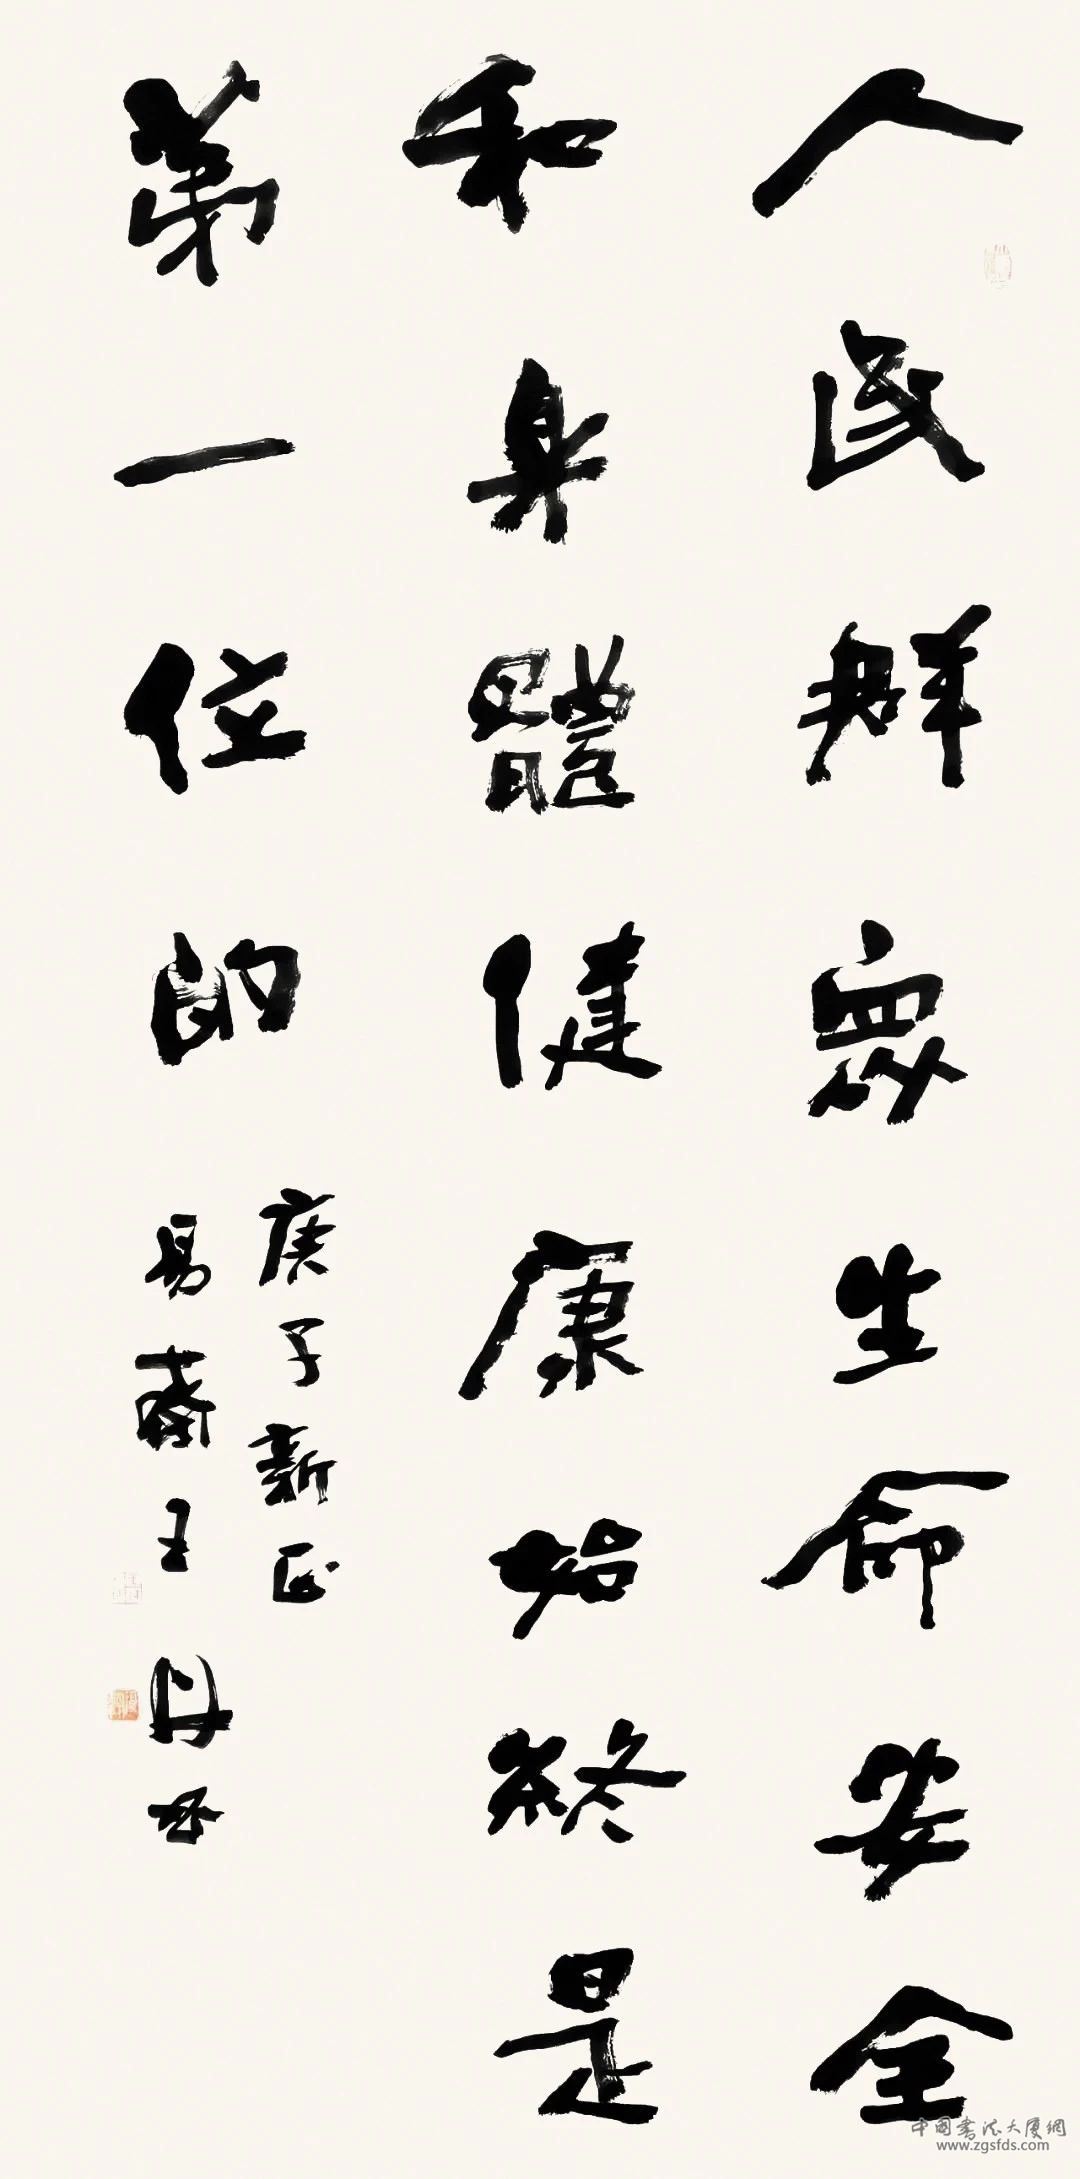 人民群眾生命安全
和身體健康始終是
第一位的
庚子新正
易齋王丹書
中国书法大厦網
www.zgsfds.com